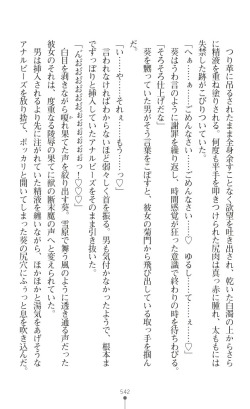 つり革に吊るされたまま全身余すことなく欲望を吐き出され、乾いた白濁の上からさら
に精液を重ね塗りされる。何度も平手を叩きつけられた尻肉は真っ赤に腫れ、太ももには
失禁した跡がこびりついていた。
「へぁ……ぁ……ごめんなさい……♡　ゆるし……てぇ……ごめんなさい……♡」
葵はうわ言のように謝罪を繰り返し、時間感覚が狂った意識で終わりの時を待ちわびる。
「そろそろ仕上げだな」
葵を囲んでいた男の一人がそう言葉をこぼすと、彼女の菊門から飛び出している取っ手を掴ん
「い……や……それぇ……もう……っ♡」
言われなければわからないほど弱々しく首を振る。男も気付かなかったようで、根本ま
でずっぷりと挿入していたアナルビーズをそのまま引き抜いた。
「んおおおおおおおおおおおおおおっ♡♡」
白目を剥きながら嗄れ果てた声を上げる葵。雪原で舞う風のように透き通る声だった
彼女のそれは、度重なる陵辱の果てに獣の断末魔の声へと変えられていた。
男は挿入されるより先に注がれていた精液を纏いながら、ほかほかと湯気をあげそうな
アナルビーズを放り捨て、ポッカリと開いた葵の尻穴にふぅっと息を吹き込んだ。
542